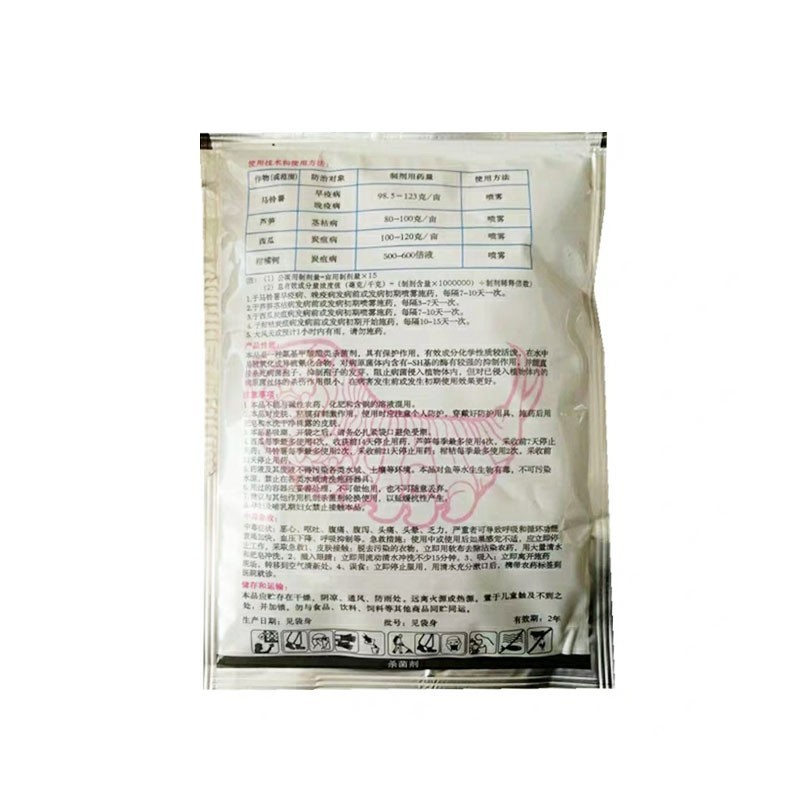 使用技术和使用方法:
作物(或范围) 防治对象 制剂用药量 使用方法
马铃薯 早疫病 晚疫病 98.5-123克/亩 喷雾
芦笋 茎枯病 80-100克/亩 喷雾
西瓜 炭疽病 100-120克/亩 喷雾
柑橘树 炭疽病 500-600倍液 喷雾
注:(1)公顷用制剂量=亩用制剂量×15
(2)总有效成分量浓度值(毫克/千克)=(制剂含量×1000000)÷制剂稀释倍数)
1.于马铃薯早疫病、晚疫病发病前或发病初期喷雾施药,每隔7-10天一次。
2.于芦笋茎枯病发病前或发病初期喷雾施药,每隔5-7天一次。
3.于西瓜炭疽病发病前或发病初期喷雾施药,每隔7-10天一次。
4.于柑桔炭疽病发病前或发病初期开始施药,每隔10-15天一次。
5.大风天或预计1小时内有雨,请勿施药。
产品性能:
本品是一种氨基甲酸酯类杀菌剂,具有保护作用,有效成分化学性质较活泼,在水中
易被氧化成异硫氰化合物,对病原菌体内含有-SH基的酶有较强的抑制作用,并能直
接杀死病菌孢子,抑制孢子的发芽,阻止病菌侵入植物体内,但对已侵入植物体内的
病原菌丝体的杀伤作用很小,在病害发生前或发生初期使用效果更好。
注意事项:
1.本品不能与碱性农药、化肥和含铜的溶液混用。
2.本品对皮肤、黏膜有刺激作用,使用时应注意个人防护,穿戴好防护用具,施药后用
肥皂和水洗干净裸露的皮肤。
3.本品易吸潮,开袋之后,请务必扎紧袋口避免受潮。
4.西瓜每季最多使用4次,收获前14天停止用药,芦笋每季最多使用4次,采收前7天停止
用药;马铃薯每季最多使用2次,采收前21天停止用药;柑桔每季最多使用2次,采收前
天停止用药。
5.药液及其废液不得污染各类水域、土壤等环境。本品对鱼等水生生物有毒,不可污染
水源,禁止在各类水域清洗施药器具;
6.用过的容器应妥善处理,不可做他用,也不可随意丢弃。
7.建议与其他作用机制杀菌剂轮换使用,以延缓抗性产生。
8.孕妇及哺乳期妇女禁止接触本品。
中毒急救:
中毒症状:恶心、呕吐、腹痛、腹泻、头痛、头晕、乏力,严重者可导致呼吸和循环功能
衰竭加快、血压下降、呼吸抑制等。急救措施:使用中或使用后如果感觉不适,应立即停
止工作,采取急救1、皮肤接触:脱去污染的衣物,立即用软布去除沾染农药,用大量清水
和肥皂冲洗。2、溅入眼睛:立即用流动清水冲洗不少15分钟。3、吸入:立即离开施药
现场,转移到空气清新处。4、误食:立即停止服用,用清水充分漱口后,携带农药标签到
医院就诊。
储存和运输:
本品应贮存在干燥、阴凉、通风、防雨处。远离火源或热源。置于儿童触及不到之
处,并加锁。勿与食品、饮料、饲料等其他商品同贮同运。
生产日期:见袋身 批号:见袋身 有效期:2年
杀菌剂